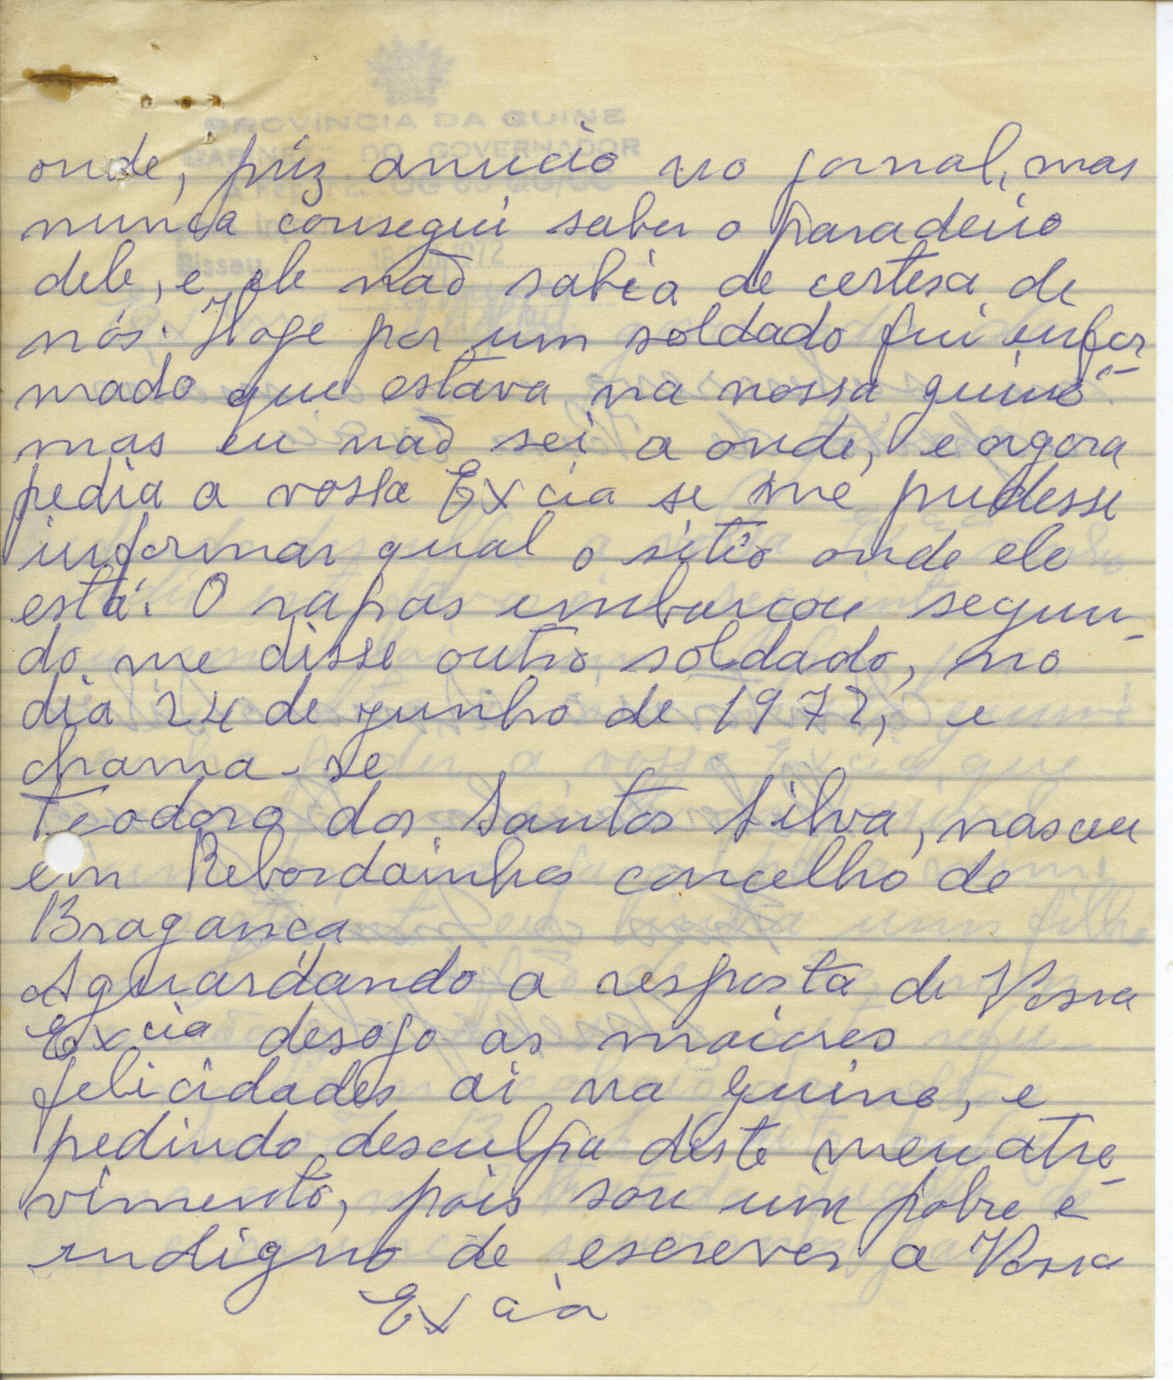 PROVINCIA DA GUINE
GABINETE DO GOVERNADOR
Bissau, 1972
onde, puz anucio no jornal, mas
nunca consegui saber o paradeiro
dele, e ele não sabia de certesa de
nós. Hoje por um soldado fui infor
mado que estava na nossa guiné
mas eu não sei a onde, e agora
pedia a vossa Excia se me pudesse
informar qual o sitio onde ele
está. O rapas embarcou segun-
do me disse outro soldado, no
dia 24 de junho de 1972, e
chama-se
Teodoro dos Santos Silva, nasceu
em Rebordainhos concelho de
Bragança
Aguardando a resposta de Vossa
Excia desejo as maiores
felicidades ai na guine, e
pedindo desculpa deste meu atre-
vimento, pois sou um pobre e
indigno de escrever a Vossa
Excia